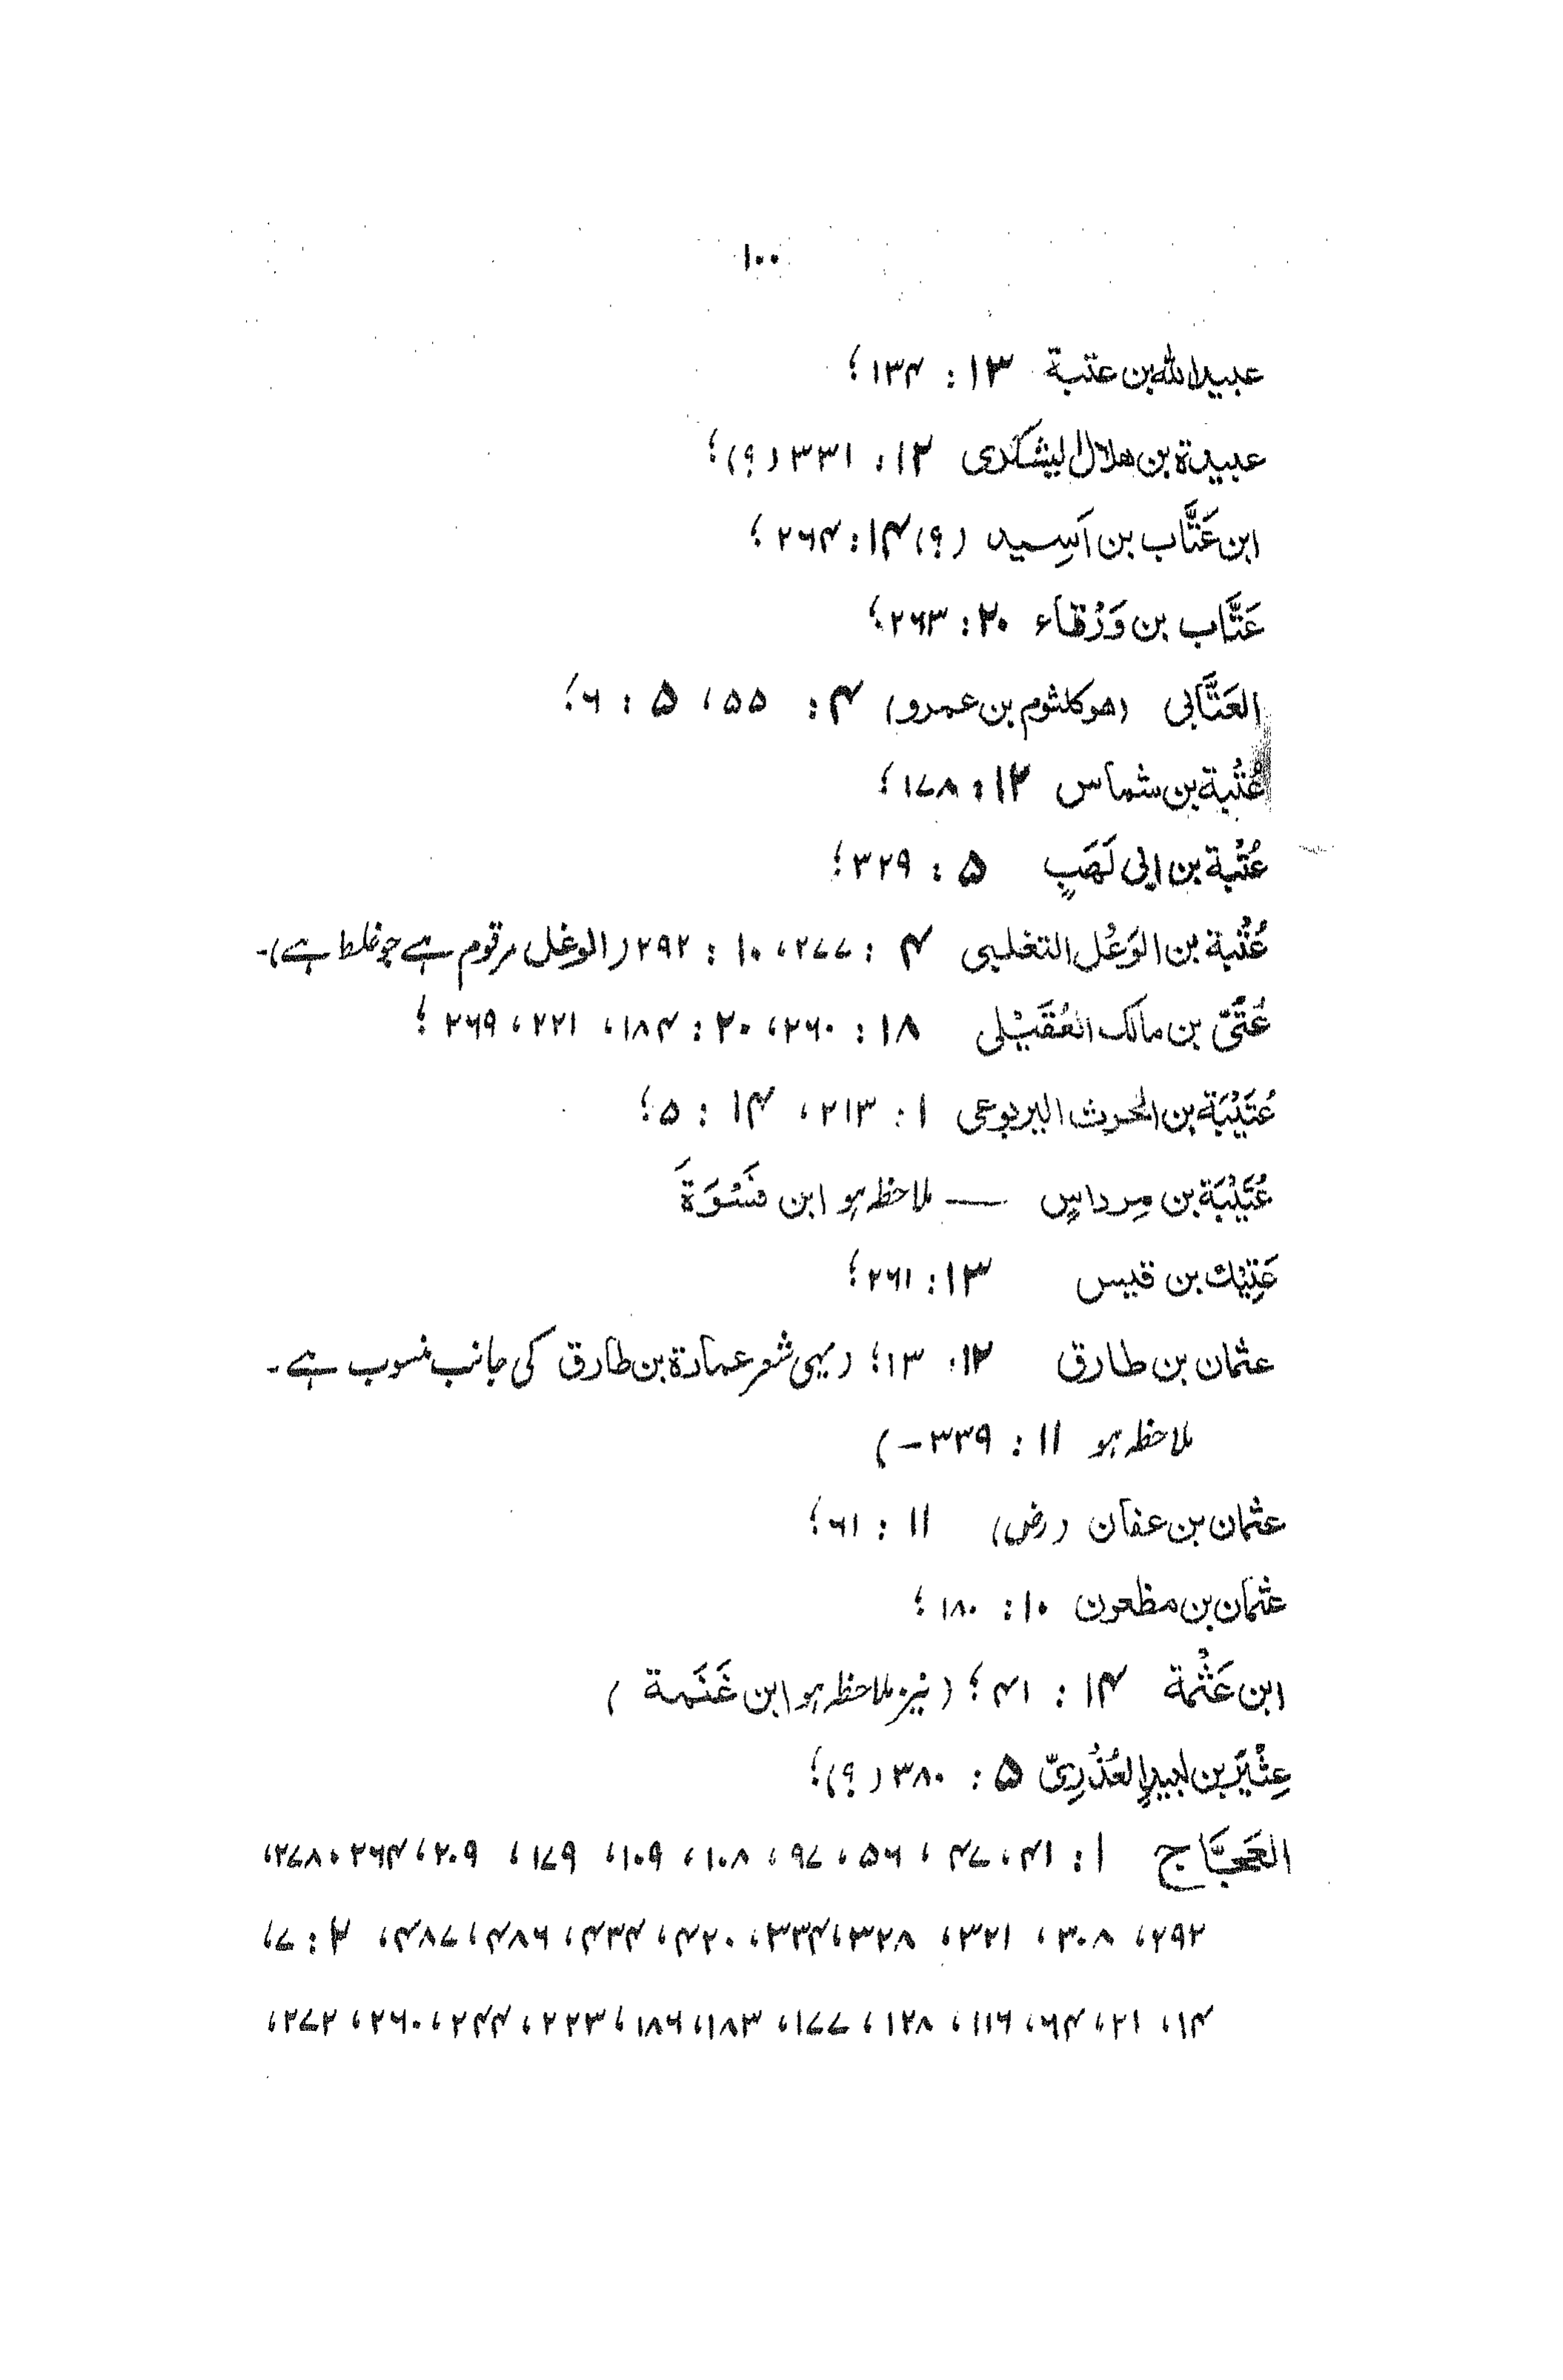 ۱۰۰
عبیداللہ بن عتبة ۱۳ : ۱۳۴؛
عبیدة بن هلال الیشکری ۱۲ : ۳۳۱ (؟)؛
ابن عَتَّاب بن اَسِید (؟) ۱۴ : ۲۶۴؛
عَتَّاب بن وَرْقاء ۲۰ : ۲۶۳؛
العَتَّابی (هو کلثوم بن عمرو) ۴ : ۵۵، ۵ : ۶؛
عُتْبة بن شماس ۱۲ : ۱۷۸؛
عُتْبة بن ابی لَهَبٍ ۵ : ۳۲۹؛
عُتْبة بن الوَعْل التغلبی ۴ : ۲۷۷، ۱۰ : ۲۹۲ (الوغل مرقوم ہے جو غلط ہے)۔
عُتَیّ بن مالک العُقَیْلی ۱۸ : ۲۶۰، ۲۰ : ۱۸۴، ۲۲۱، ۲۶۹؛
عُتَیْبَة بن الحرث الیربوعی ۱ : ۲۱۳، ۱۴ : ۵؛
عُتَیْبَة بن مِرداسٍ — ملاحظہ ہو ابن فَسْوَةَ
عَتِیْك بن قیس ۱۳ : ۲۶۱؛
عثمان بن طارق ۱۲ : ۱۳؛ (یہی شعر عمارة بن طارق کی جانب منسوب ہے۔
ملاحظہ ہو ۱۱ : ۳۳۹ –)
عثمان بن عفان (رض) ۱۱ : ۶۱؛
عثمان بن مظعون ۱۰ : ۱۸۰؛
ابن عَثْمة ۱۴ : ۴۱؛ (نیز ملاحظہ ہو ابن غَنَمة)
عِثْیَر بن لبیدٍ العُذْرِیّ ۵ : ۳۸۰ (؟)؛
العَجَّاج ۱ : ۴۱، ۷۴، ۵۶، ۹۷، ۱۰۸، ۱۰۹، ۱۷۹، ۲۰۹، ۲۶۴، ۲۷۸،
۲۹۲، ۳۰۸، ۳۲۱، ۳۲۸، ۳۳۴، ۴۲۰، ۴۳۴، ۴۸۶، ۴۸۷، ۲ : ۷،
۱۴، ۲۱، ۶۴، ۱۱۶، ۱۲۸، ۱۷۷، ۱۸۳، ۱۸۶، ۲۲۳، ۲۴۴، ۲۶۰، ۲۷۲،